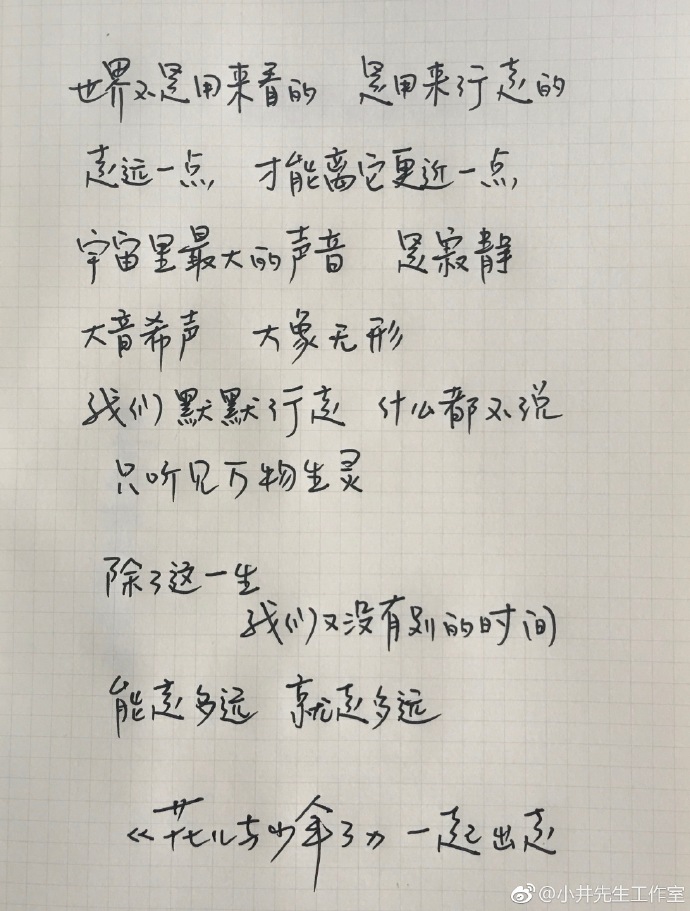 世界不是用来看的 是用来行走的
走远一点 才能离它更近一点
宇宙里最大的声音 是寂静
大音希声 大象无形
我们默默行走 什么都不说
只听见万物生灵
除了这一生
我们又没有别的时间
能走多远 就走多远
《花儿与少年3》 一起出走
@小井先生工作室